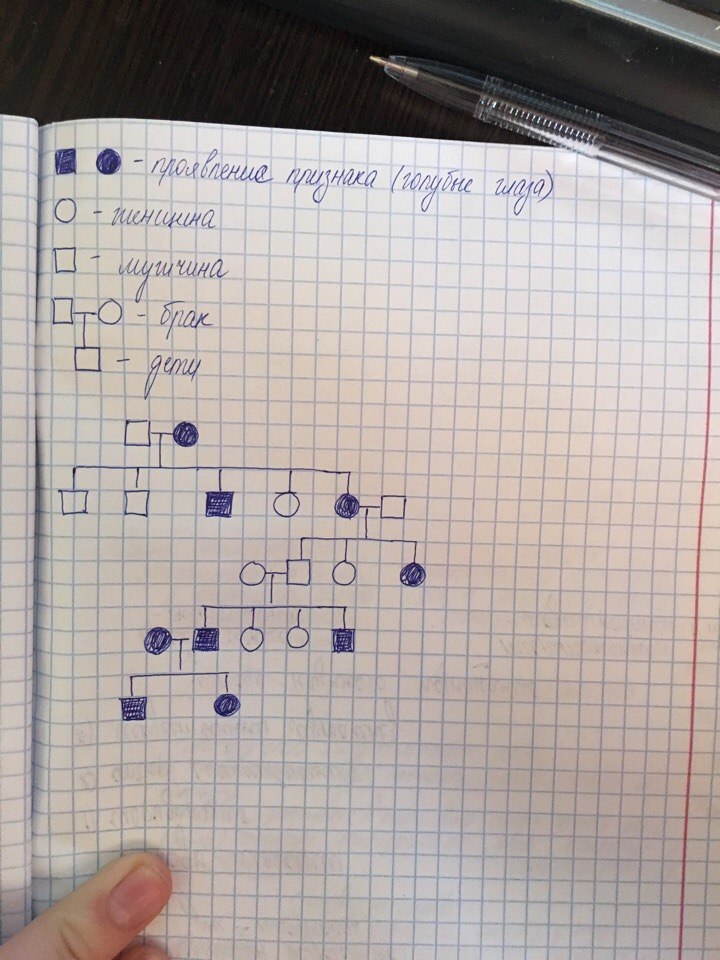 - проявление признака (голубые глаза)
- женщина
- мужчина
- брак
- дети